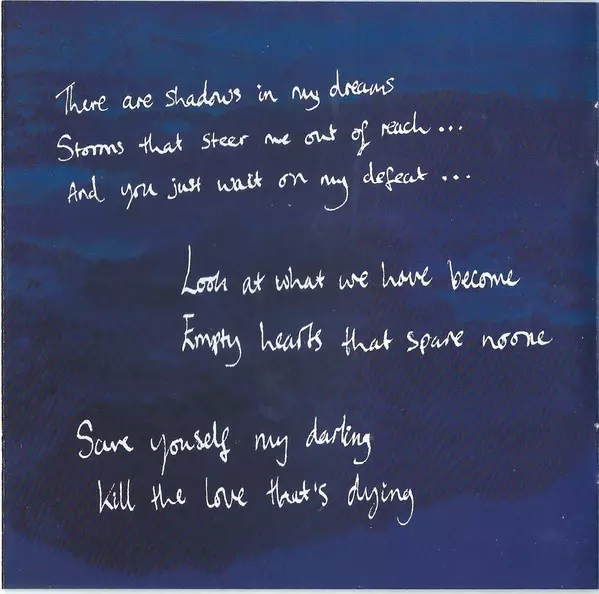 There are shadows in my dreams
Storms that steer me out of reach...
And you just wait on my defeat...
Look at what we have become
Empty hearts that spare noone
Save yourself my darling
kill the love that's dying